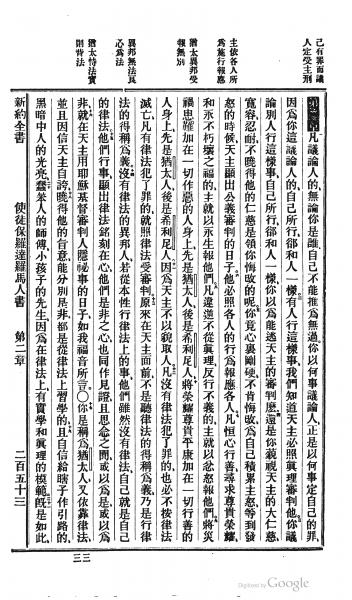 己有罪而議
人定受主刑
主依各人所
爲施行報應
猶太異邦受
報無別
異邦無法良
心爲法
猶太恃法實
則背法
第二章 凡議論人的、無論你是誰、自己不能推爲無過、你以何事議論人、正是以何事定自己的罪、
因爲你這議論人的、自己所行、郤和人一樣、有人行這樣事、我們知道天主必照眞理審判他、你議
論別人行這樣事、自己所行、郤和人一樣、你以爲能逃天主的審判麽、還是你藐視天主的大仁慈、
寬容忍耐、不曉得他的仁慈是領你悔改的呢、你竟心裏剛硬、不肯悔改、爲自己積累主怒、等到發
怒的時候、天主顯出公義審判的日子、他必照各人的行爲報應各人、凡恒心行善、尋求尊貴榮耀、
和永不朽壞之福的、主就以永生報他們、凡違逆不從眞理、反行不義的、主就以忿怒報他們、將災
禍患難加在一切作惡的人身上、先是猶太人、後是希利尼人、將榮耀尊貴平康加在一切行善的
人身上、先是猶太人、後是希利尼人、因爲天主不以貌取人、凡沒有律法犯了罪的、也必不按律法
滅亡、凡有律法犯了罪的、就照律法受審判、原來在天主面前、不是聽律法的得稱爲義、乃是行律
法的得稱爲義、沒有律法的異邦人、若從本性行律法上的事、他們雖然沒有律法、自己就是自己
的律法、他們行事顯出律法銘刻在心、他們是非之心也同作見證、且思念之間、或以爲是、或以爲
非、就在天主用耶穌基督審判人隱祕事的日子、如我福音所言、○你是稱爲猶太人、又依靠律法、
並且因信天主自誇、曉得他的旨意、能分別是非、都是從律法上習學的、且自信給瞎子作引路的、
黑暗中人的光亮、蠢笨人的師傅、小孩子的先生、因爲在律法上、有實學和眞理的模範、旣是如此、
新約全書 使徒保羅達羅馬人書 第二章 二百五十三
三三
Digitized by Google